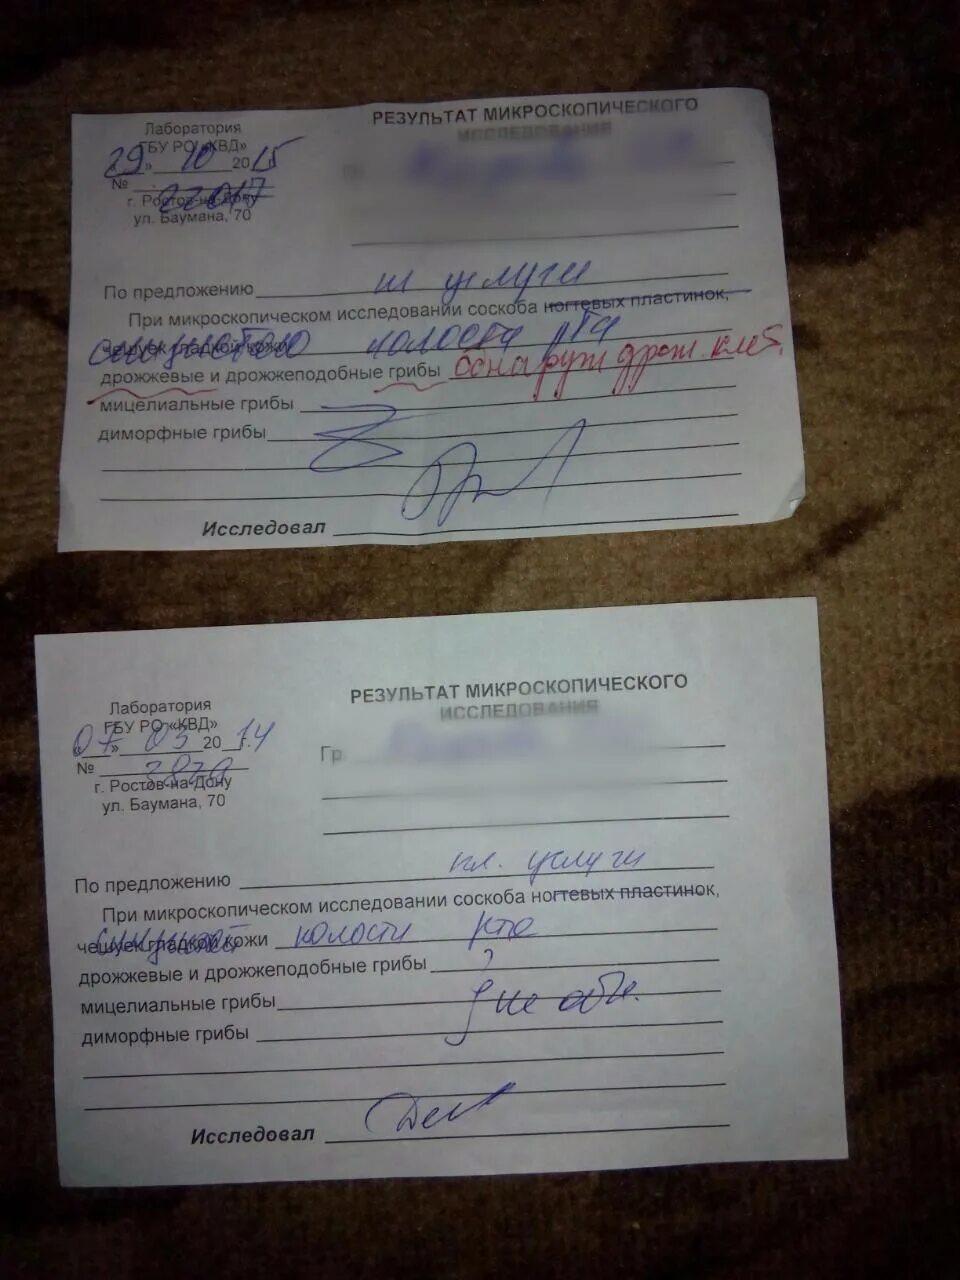 Лаборатория
ГБУ РО «КВД»
«29» 10 2015 г.
РЕЗУЛЬТАТ МИКРОСКОПИЧЕСКОГО
ИССЛЕДОВАНИЯ
№ 22017
г. Ростов-на-Дону
ул. Баумана, 70
По предложению пл услуги
При микроскопическом исследовании соскоба ногтевых пластинок,
чешуек гладкой кожи слизистой полости рта
дрожжевые и дрожжеподобные грибы обнаруж дрож. клет.
мицелиальные грибы
диморфные грибы
Исследовал
Лаборатория
ГБУ РО «КВД»
«07» 03 2014 г.
РЕЗУЛЬТАТ МИКРОСКОПИЧЕСКОГО
ИССЛЕДОВАНИЯ
Гр
№
г. Ростов-на-Дону
ул. Баумана, 70
По предложению пл. услуги
При микроскопическом исследовании соскоба ногтевых пластинок,
чешуек гладкой кожи полости рта
дрожжевые и дрожжеподобные грибы
мицелиальные грибы не обн.
диморфные грибы
Исследовал